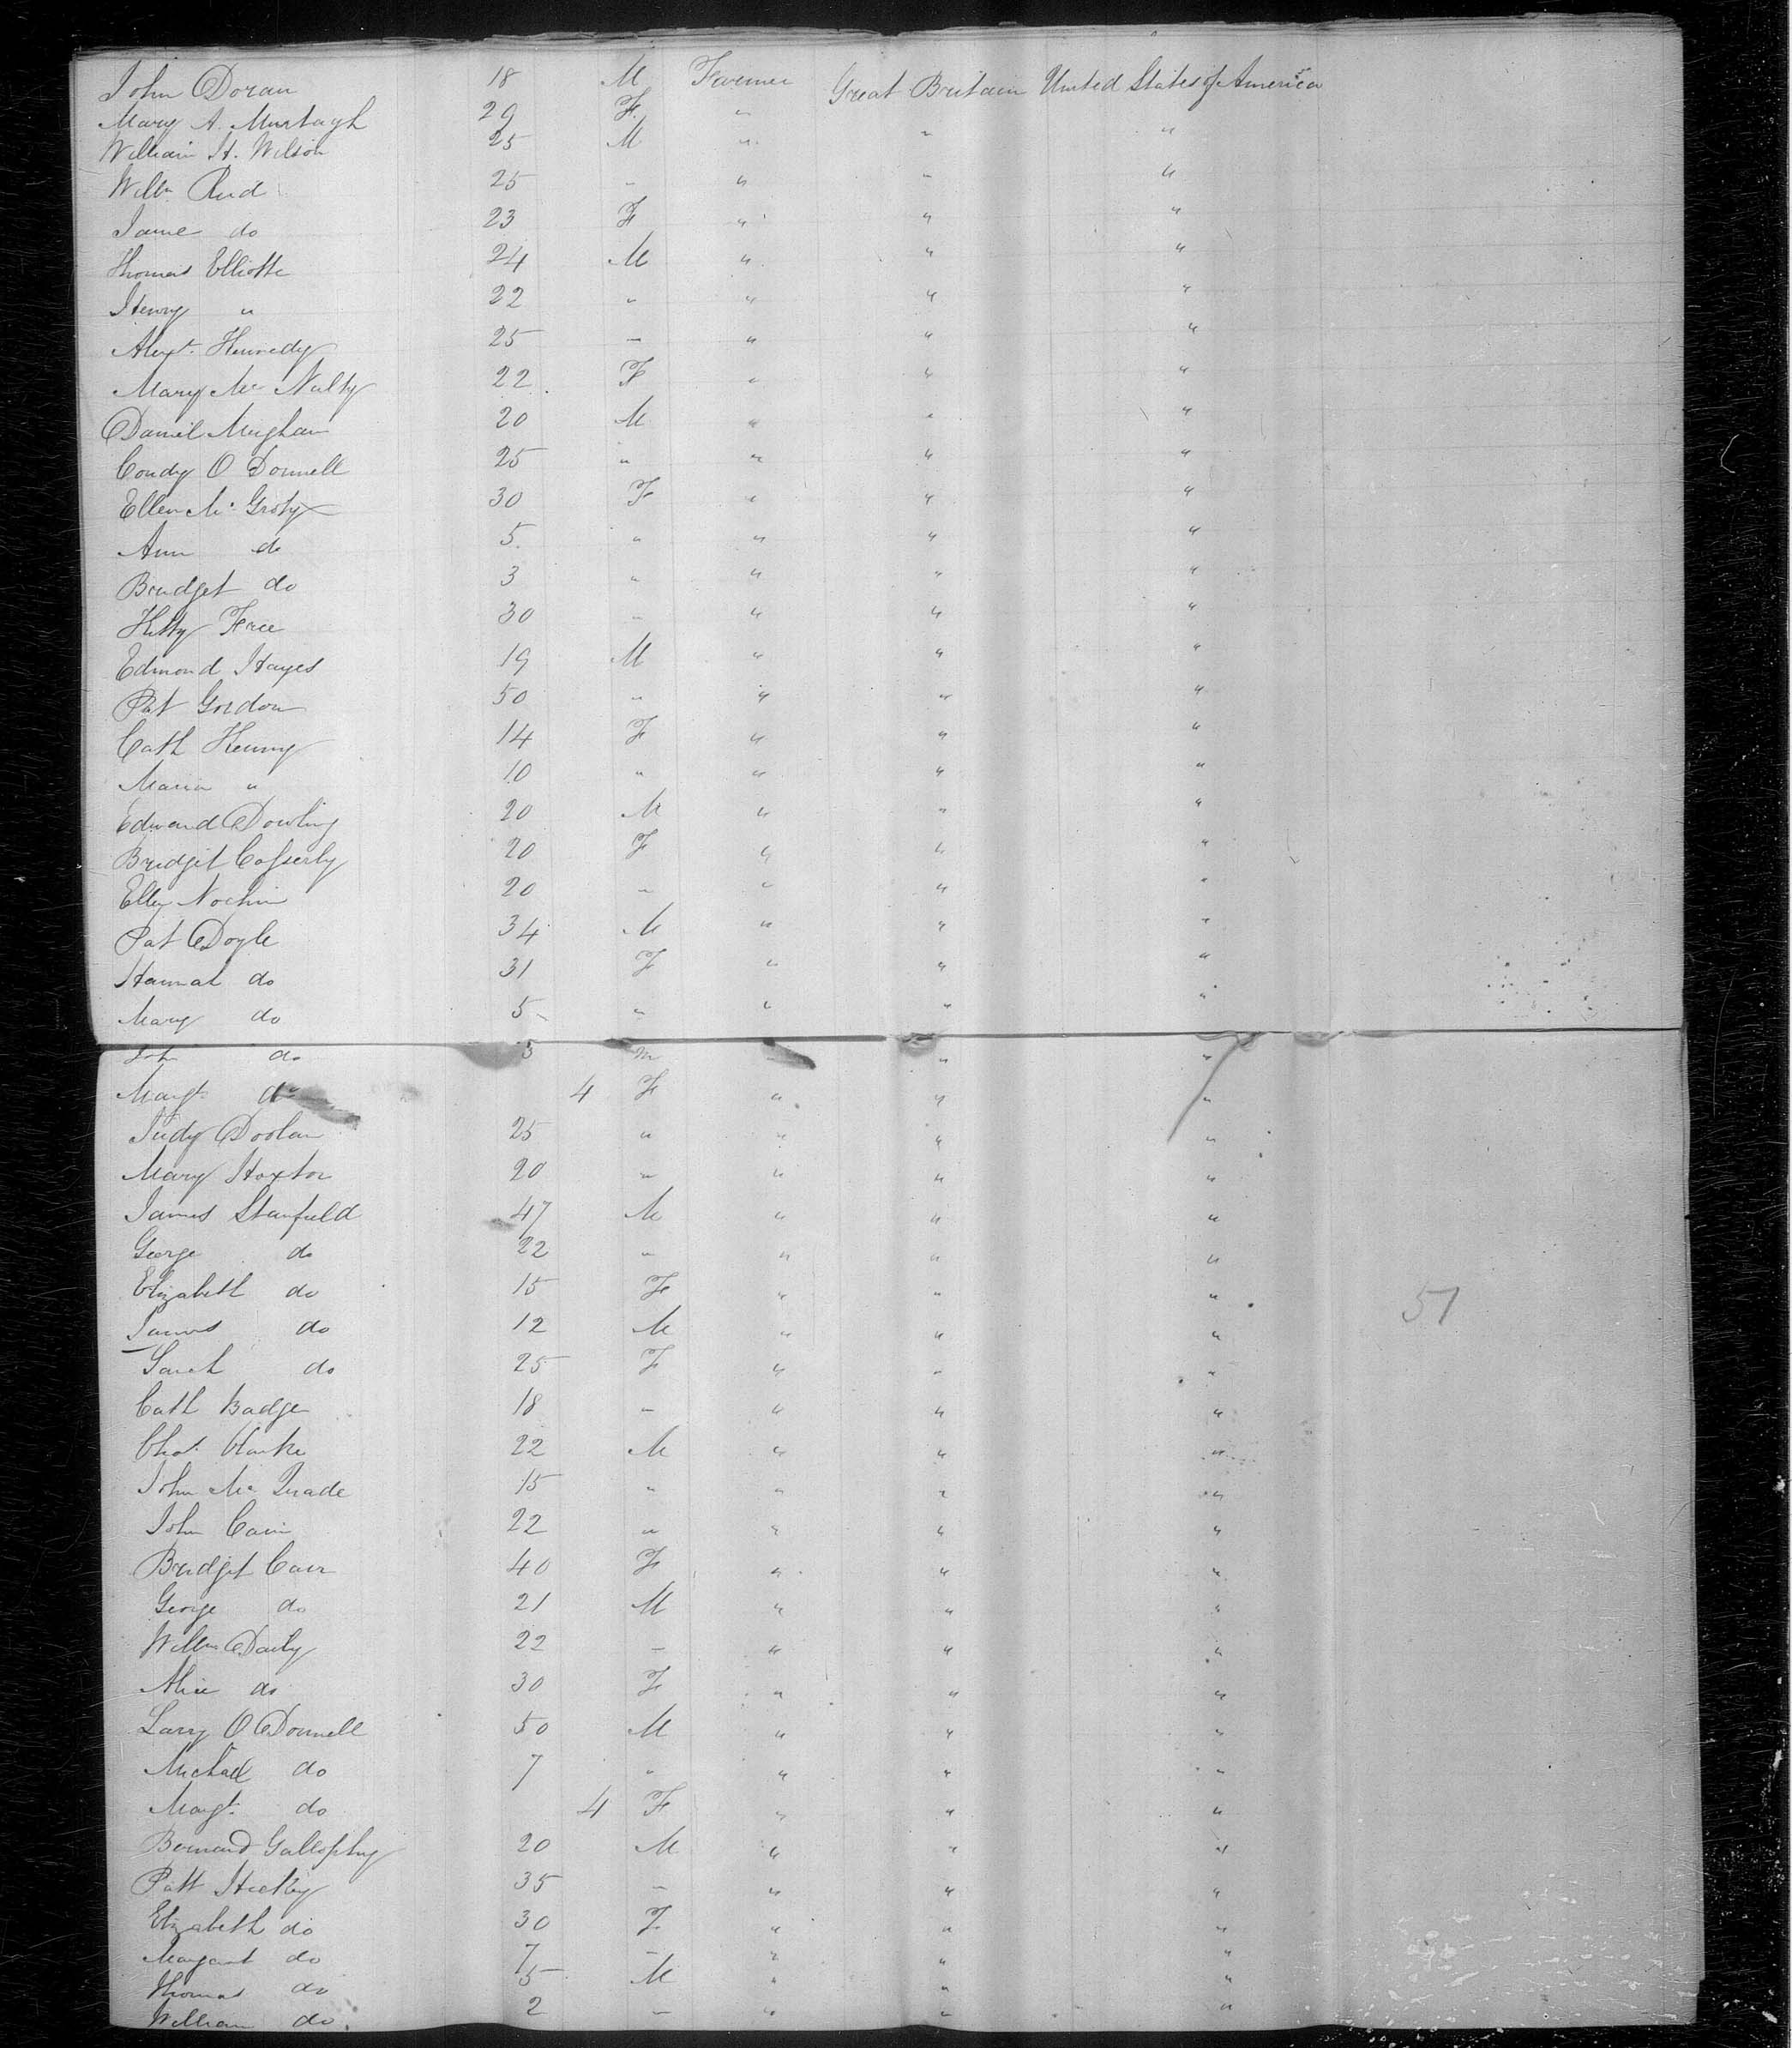 John Doran 18 M Farmer Great Britain United States of America
Mary A. Murtagh 29 F. " " "
William H. Wilson 25 M " " "
Willm Reid 25 " " " "
Jane do 23 F " " "
Thomas Elliotte 24 M " " "
Henry " 22 " " " "
Alexr. Kennedy 25 " " " "
Mary Mc Nalty 22 F " " "
Daniel Meghan 20 M " " "
Condy O Donnell 25 " " " "
Ellen Mc Groty 30 F " " "
Ann do 5 " " " "
Bridget do 3 " " " "
Kitty Free 30 " " " "
Edmond Hayes 19 M " " "
Pat Gordon 50 " " " "
Cath Kenny 14 F " " "
Maria " 10 " " " "
Edward Dowling 20 M " " "
Bridget Casserly 20 F " " "
Elley 20 " " " "
Pat Doyle 34 M " " "
Hannah do 31 F " " "
Mary do 5 " " " "
John do 3 M " " "
Margt. do 4 F " " "
Judy Doolan 25 " " " "
Mary Hoxton 20 " " " "
James Stanfield 47 M " " "
George do 22 " " " "
Elizabeth do 15 F " " "
James do 12 M " " "
Sarah do 25 F " " "
Cath Badge 18 " " " "
Chas. Clarke 22 M " " "
John Mc Quade 15 " " " "
John Cain 22 " " " "
Bridget Carr 40 F " " "
George do 21 M " " "
Willm Daily 22 " " " "
Alice do 30 F " " "
Larry O Donnell 50 M " " "
Michael do 7 " " " "
Margt. do 4 F " " "
Bernard 20 M " " "
Patt Hickey 35 " " " "
Elizabeth do 30 F " " "
Margaret do 7 " " " "
Thomas do 5 M " " "
William do. 2 " " " "
51